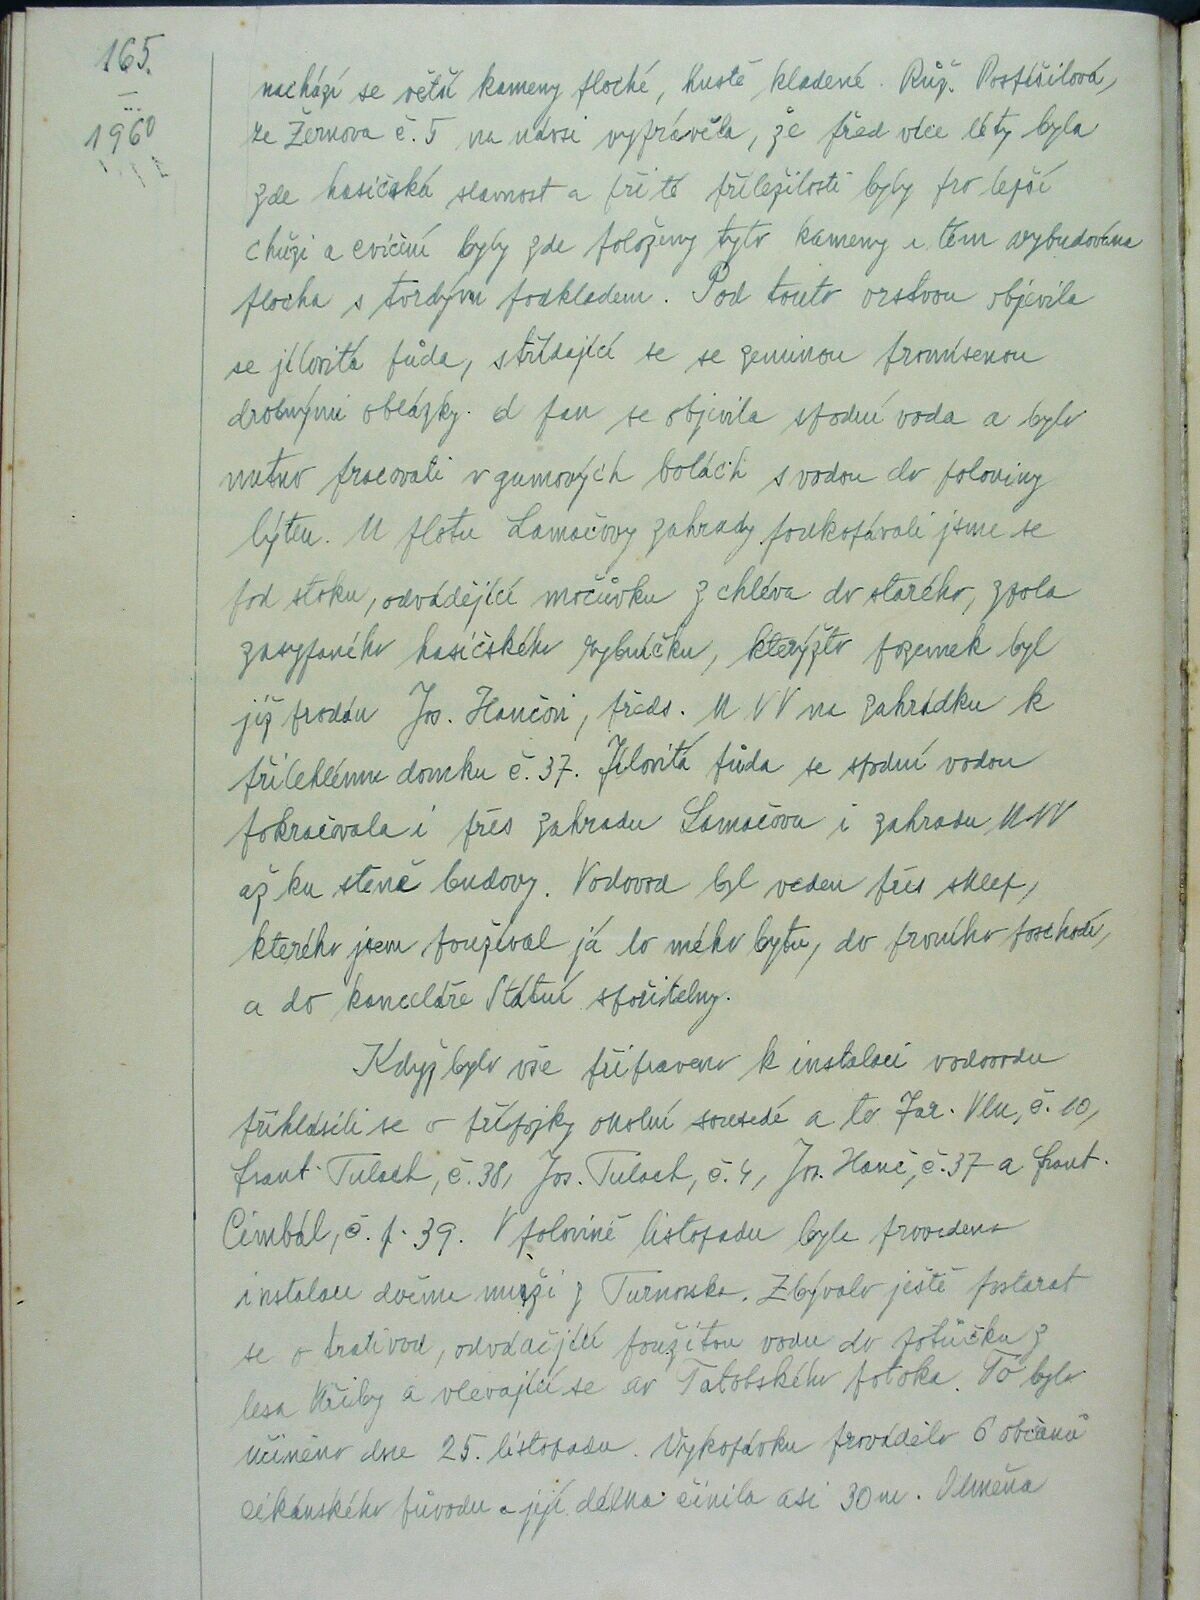 165.
1960
nachází se větší kameny ploché, hustě kladené. Růž. Pospíšilová,
ze Žernova č. 5 na návsi vyprávěla, že před více léty byla
zde hasičská slavnost a při té příležitosti byly pro lepší
chůzi a cvičení byly zde položeny tyto kameny a tím vybudována
plocha s tvrdým podkladem. Pod touto vrstvou objevila
se jílovitá půda, střídající se se zeminou promísenou
drobnými oblázky. I pak se objevila spodní voda a bylo
nutno pracovati v gumových botách s vodou do poloviny
lýtek. U plotu Lamačovy zahrady podkopávali jsme se
pod stoku, odvádějící močůvku z chléva do starého, zpola
zasypaného hasičského rybníčku, kterýžto pozemek byl
již prodán Jos. Hančovi, předs. MNV na zahrádku k
přilehlému domku č. 37. Jílovitá půda se spodní vodou
pokračovala i přes zahradu Lamačovu i zahradu MNV
až ku stěně budovy. Vodovod byl veden přes sklep,
kterého jsem používal já do mého bytu, do prvního poschodí,
a do kanceláře Státní spořitelny.
Když bylo vše připraveno k instalaci vodovodu
přihlásili se o přípojky okolní sousedé a to Jar. Vlk, č. 10,
Frant. Tulach, č. 38, Jos. Tulach, č. 4, Jos. Hanč, č. 37 a Frant.
Cimbál, č. p. 39. V polovině listopadu byla provedena
instalace dvěma muži z Turnovska. Zbývalo ještě postarat
se o trativod, odvádějící použitou vodu do potůčku z
lesa Křiby a vlévající se do Tatobského potoka. To bylo
učiněno dne 25. listopadu. Výkopávku provádělo 6 občanů
cikánského původu a její délka činila asi 30 m. Odměna